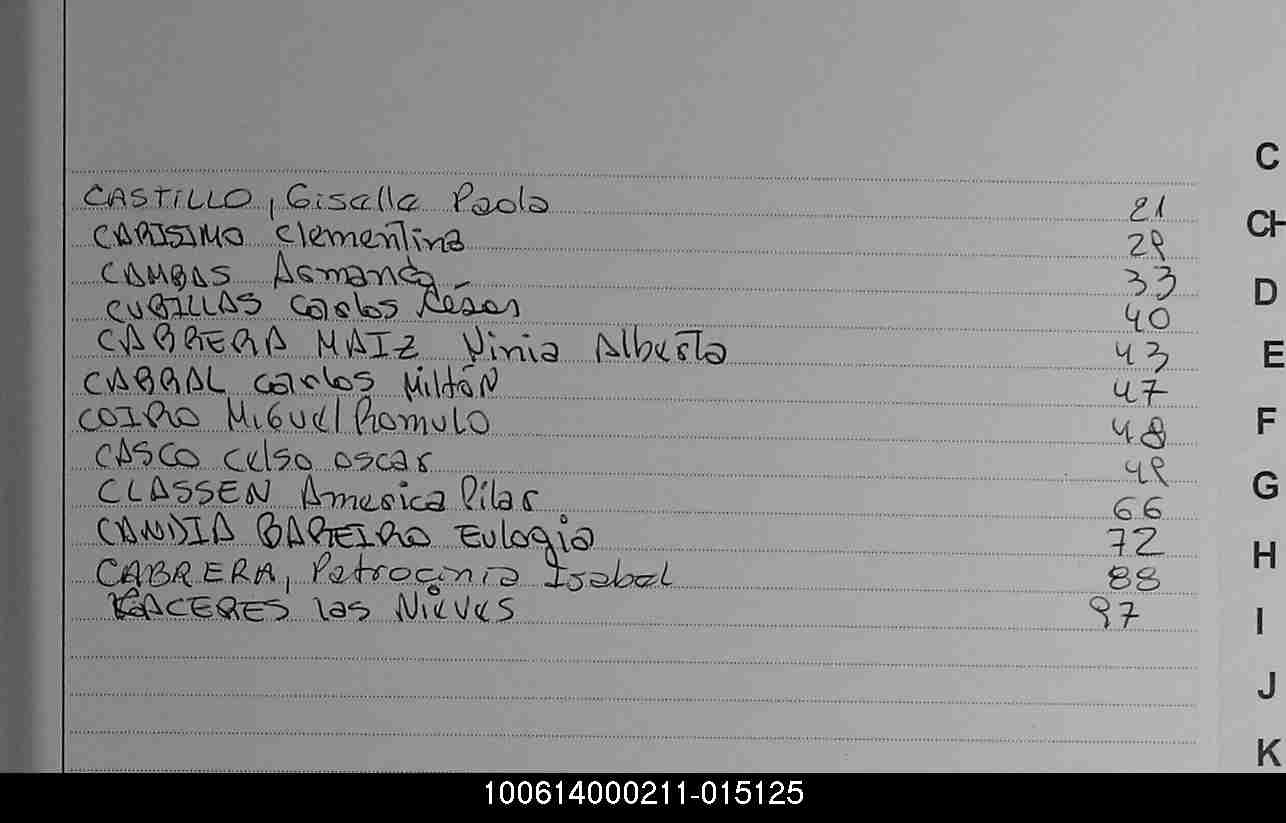 C
CASTILLO, Gisella Paola 21
CH
CARISIMO Clementina 29
CAMBAS Armanda 33
D
CUBILLAS Carlos César 40
CABRERA MAIZ Ninia Alberta 43
E
CABRAL Carlos Milton 47
COIRO Miguel Romulo 48
F
CASCO Celso Oscar 49
CLASSEN America Pilar 66
G
CANDIA BAREIRO Eulogia 72
H
CABRERA, Patrocinia Isabel 88
CACERES las Nieves 97
I
J
K
100614000211-015125